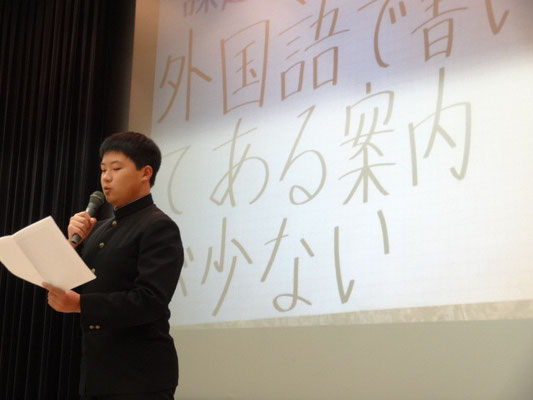 外国語で書い
てある案内
が少ない